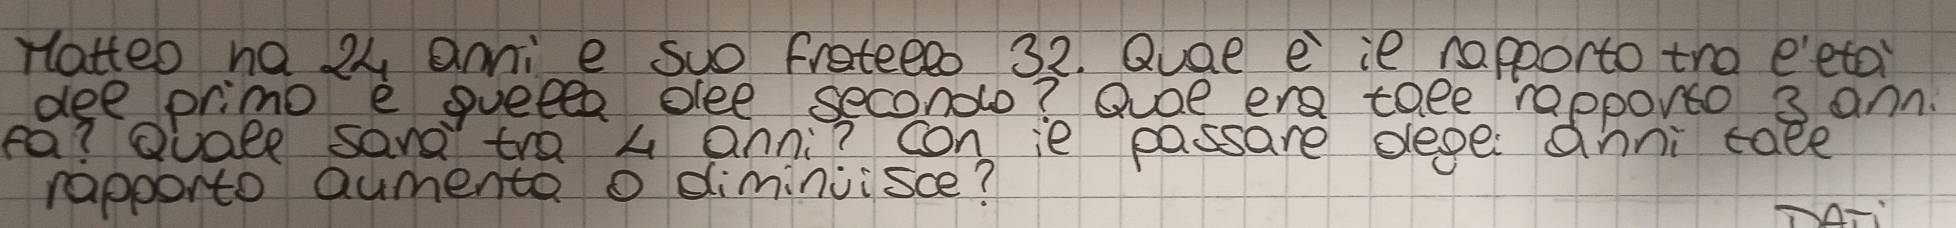 Matteo ha 24 anni e suo fratello 32. Qual è il rapporto tra l'età
del primo e quella del secondo? Qual era tale rapporto 3 ann.
fa? Quale sarà tra 4 anni? Con il passare degli anni tale
rapporto aumenta o diminuisce?
DATI